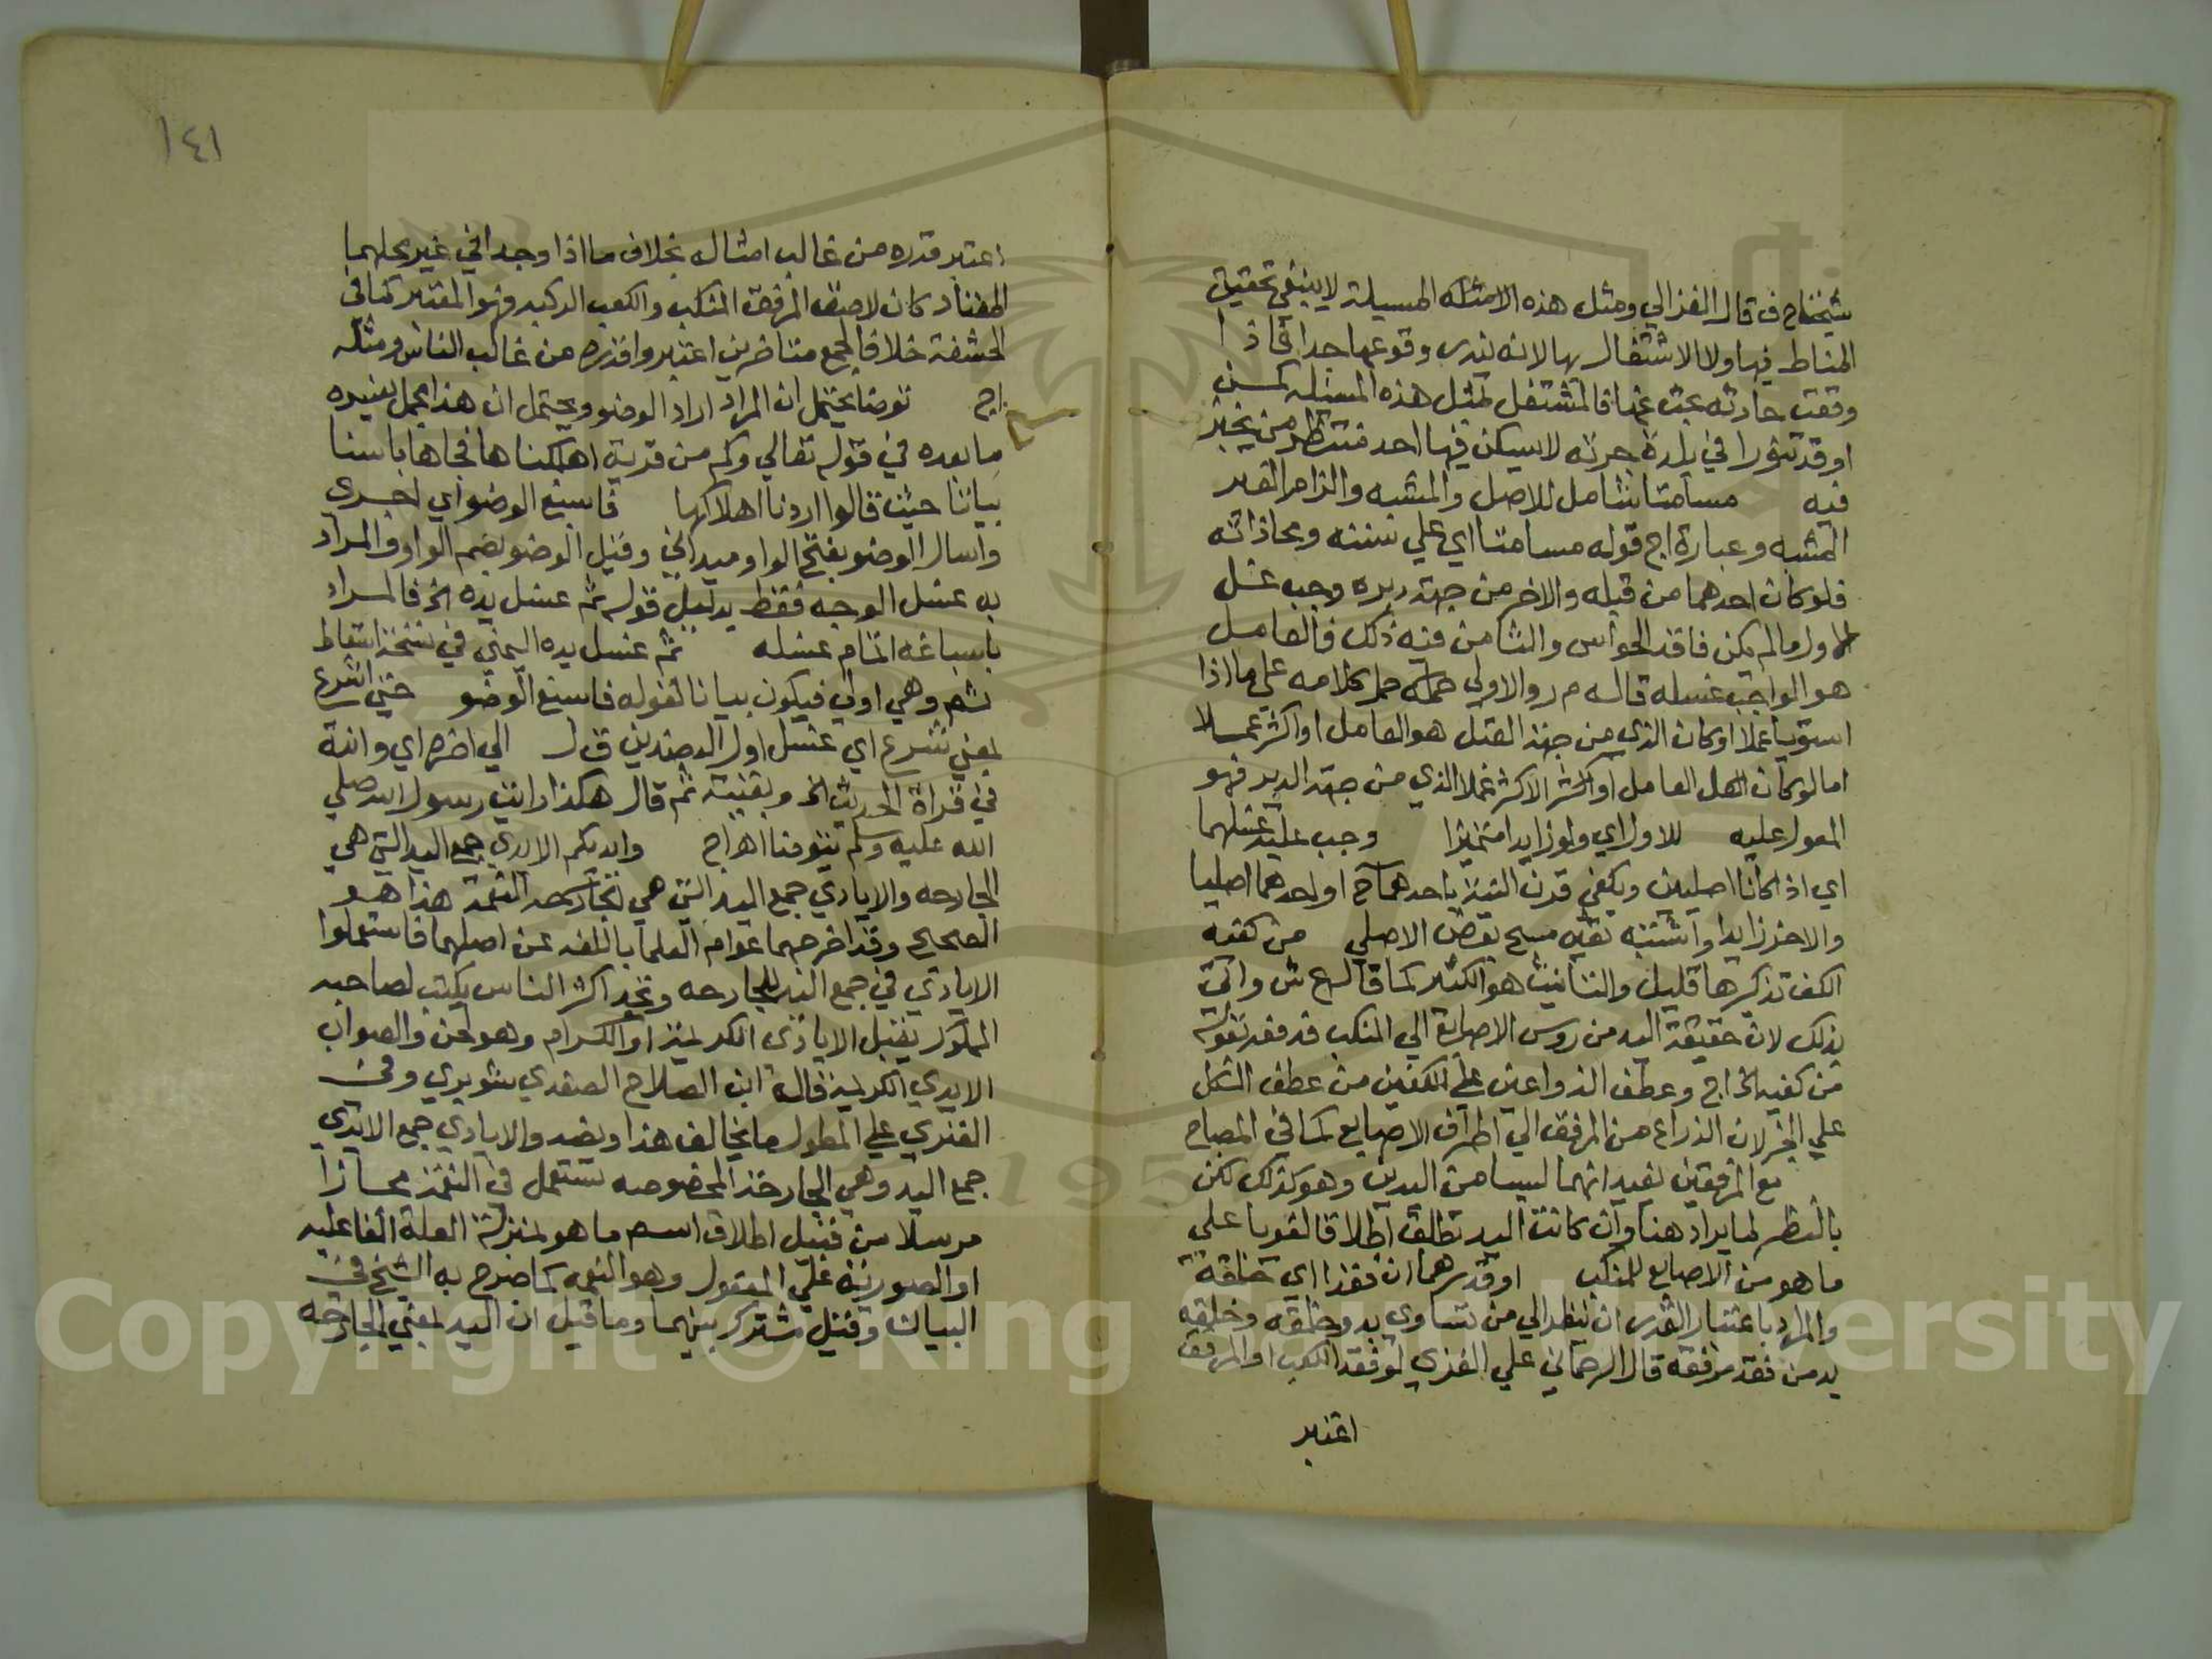 شيخنا ح ف قال الغزالي ومثل هذه الامثله المسيلة لا ينبغي تحقيق
المناط فيها ولا الاشتغال بها لانه يندر وقوعها جدا فاذا
وقعت حادثه بحث عنها فالمشتغل بمثل هذه المسئله كمن
اوقد تنورا في بلدة خربه لا يسكن فيها احد منتظر من يخبز
فيه مسامتا شامل للاصل والمشبه والزام الغير
المشبه وعبارة اج قوله مسامتا اي علي سننه ومحاذاته
فلو كان احدهما من قبله والاخر من جهة دبره وجب غسل
الاول ما لم يكن فاقد الحواس والثا من فيه ذلك فالعامل
هو الواجب غسله قاله م ر والاولى حمله حمل كلامه علي ما اذا
استويا عملا او كان الذي من جهة القبل هو العامل او اكثر عملا
اما لو كان العامل او الاكثر عملا الذي من جهة الدبر فهو
المعول عليه للاول اي ولو زايدا متميزا وجب عليه غسلهما
اي اذا كانا اصليين ويكفي قرن النية باحدهما ح او احدهما اصليا
والاخر زايدا واشتبه بقيه مسح بعض الاصلي من كفيه
الكف تذكيرها قليل والتانيث هو الكثير كما قال ع ش واتي
بذلك لان حقيقة اليد من روس الاصابع الي المنكب فدفعه بقوله
من كفيه الخ اج وعطف الذراعين علي الكفين من عطف الكل
علي الجزء لان الذراع من المرفق الي اطراف الاصابع كما في المصباح
مع المرفقين يفيد انهما ليسا من اليدين وهو كذلك لكن
بالنظر لما يراد هنا وان كانت اليد تطلق اطلاقا لغويا علي
ما هو من الاصابع للمنكب او قدرهما ان فقدا اي خلقة
والمراد باعتبار القدر ان ينظر الي من تساوي يده وخلقه وخلقه
يد من فقد مرفقه قال الرحماني علي الغزي لو فقد الكعب او المرفق
اعتبر
١٤١
اعتبر قدره من غالب امثاله بخلاف ما اذا وجدا في غير محلهما
المعتاد كان لاصق المرفق المنكب والكعب الركبه فهو المعتبر كما في
الحشفة خلافا لجمع متاخرين اعتبروا قدره من غالب الناس ومثله
اج توضا يحتمل ان المراد اراد الوضو ويحتمل ان هذا مجمل يفسره
ما بعده في قوله تعالي وكم من قرية اهلكناها فجاها باسنا
بياتا حيث قالوا اردنا اهلاكها فاسبغ الوضو اي اجري
واسال الوضو بفتح الواو ميداني وقيل الوضو بضم الواو والمراد
به غسل الوجه فقط بدليل قوله ثم غسل يده الخ فالمراد
باسباغه اتمام غسله ثم غسل يده اليمني في نسخة اسقاط
ثم وهي اولي فيكون بيانا لقوله فاسبغ الوضو حتي اشرع
بمعني شرع اي غسل اول العضدين ق ل الي اخره اي وانته
في قراة الحديث الخ وبقيته ثم قال هكذا رايت رسول الله صلي
الله عليه وسلم يتوضا اه اج وايديكم الايدي جمع اليد التي هي
الجارحه والايادي جمع اليد التي هي النعمة هذا هو
الصحيح وقد اخرجهما عوام العلما باللغه عن اصلهما فاستعملوا
الايادي في جمع اليد للجارحه وتجد اكثر الناس يكتب لصاحبه
المملوك يقبل الايادي الكريمة او الكرام وهو لحن والصواب
الايدي الكريمة قاله ابن الصلاح الصفدي شوبري وفي
الفنري علي المطول ما يخالف هذا ونصه والايادي جمع الايدي
جمع اليد وهي الجارحة المخصوصه تستعمل في النعمة مجازا
مرسلا من قبيل اطلاق اسم ما هو بمنزلة العلة الفاعليه
او الصورية علي المعول وهو النعمه كما صرح به الشيخ في
البيان وقيل مشترك بينهما وما قيل ان اليد بمعني الجارحه